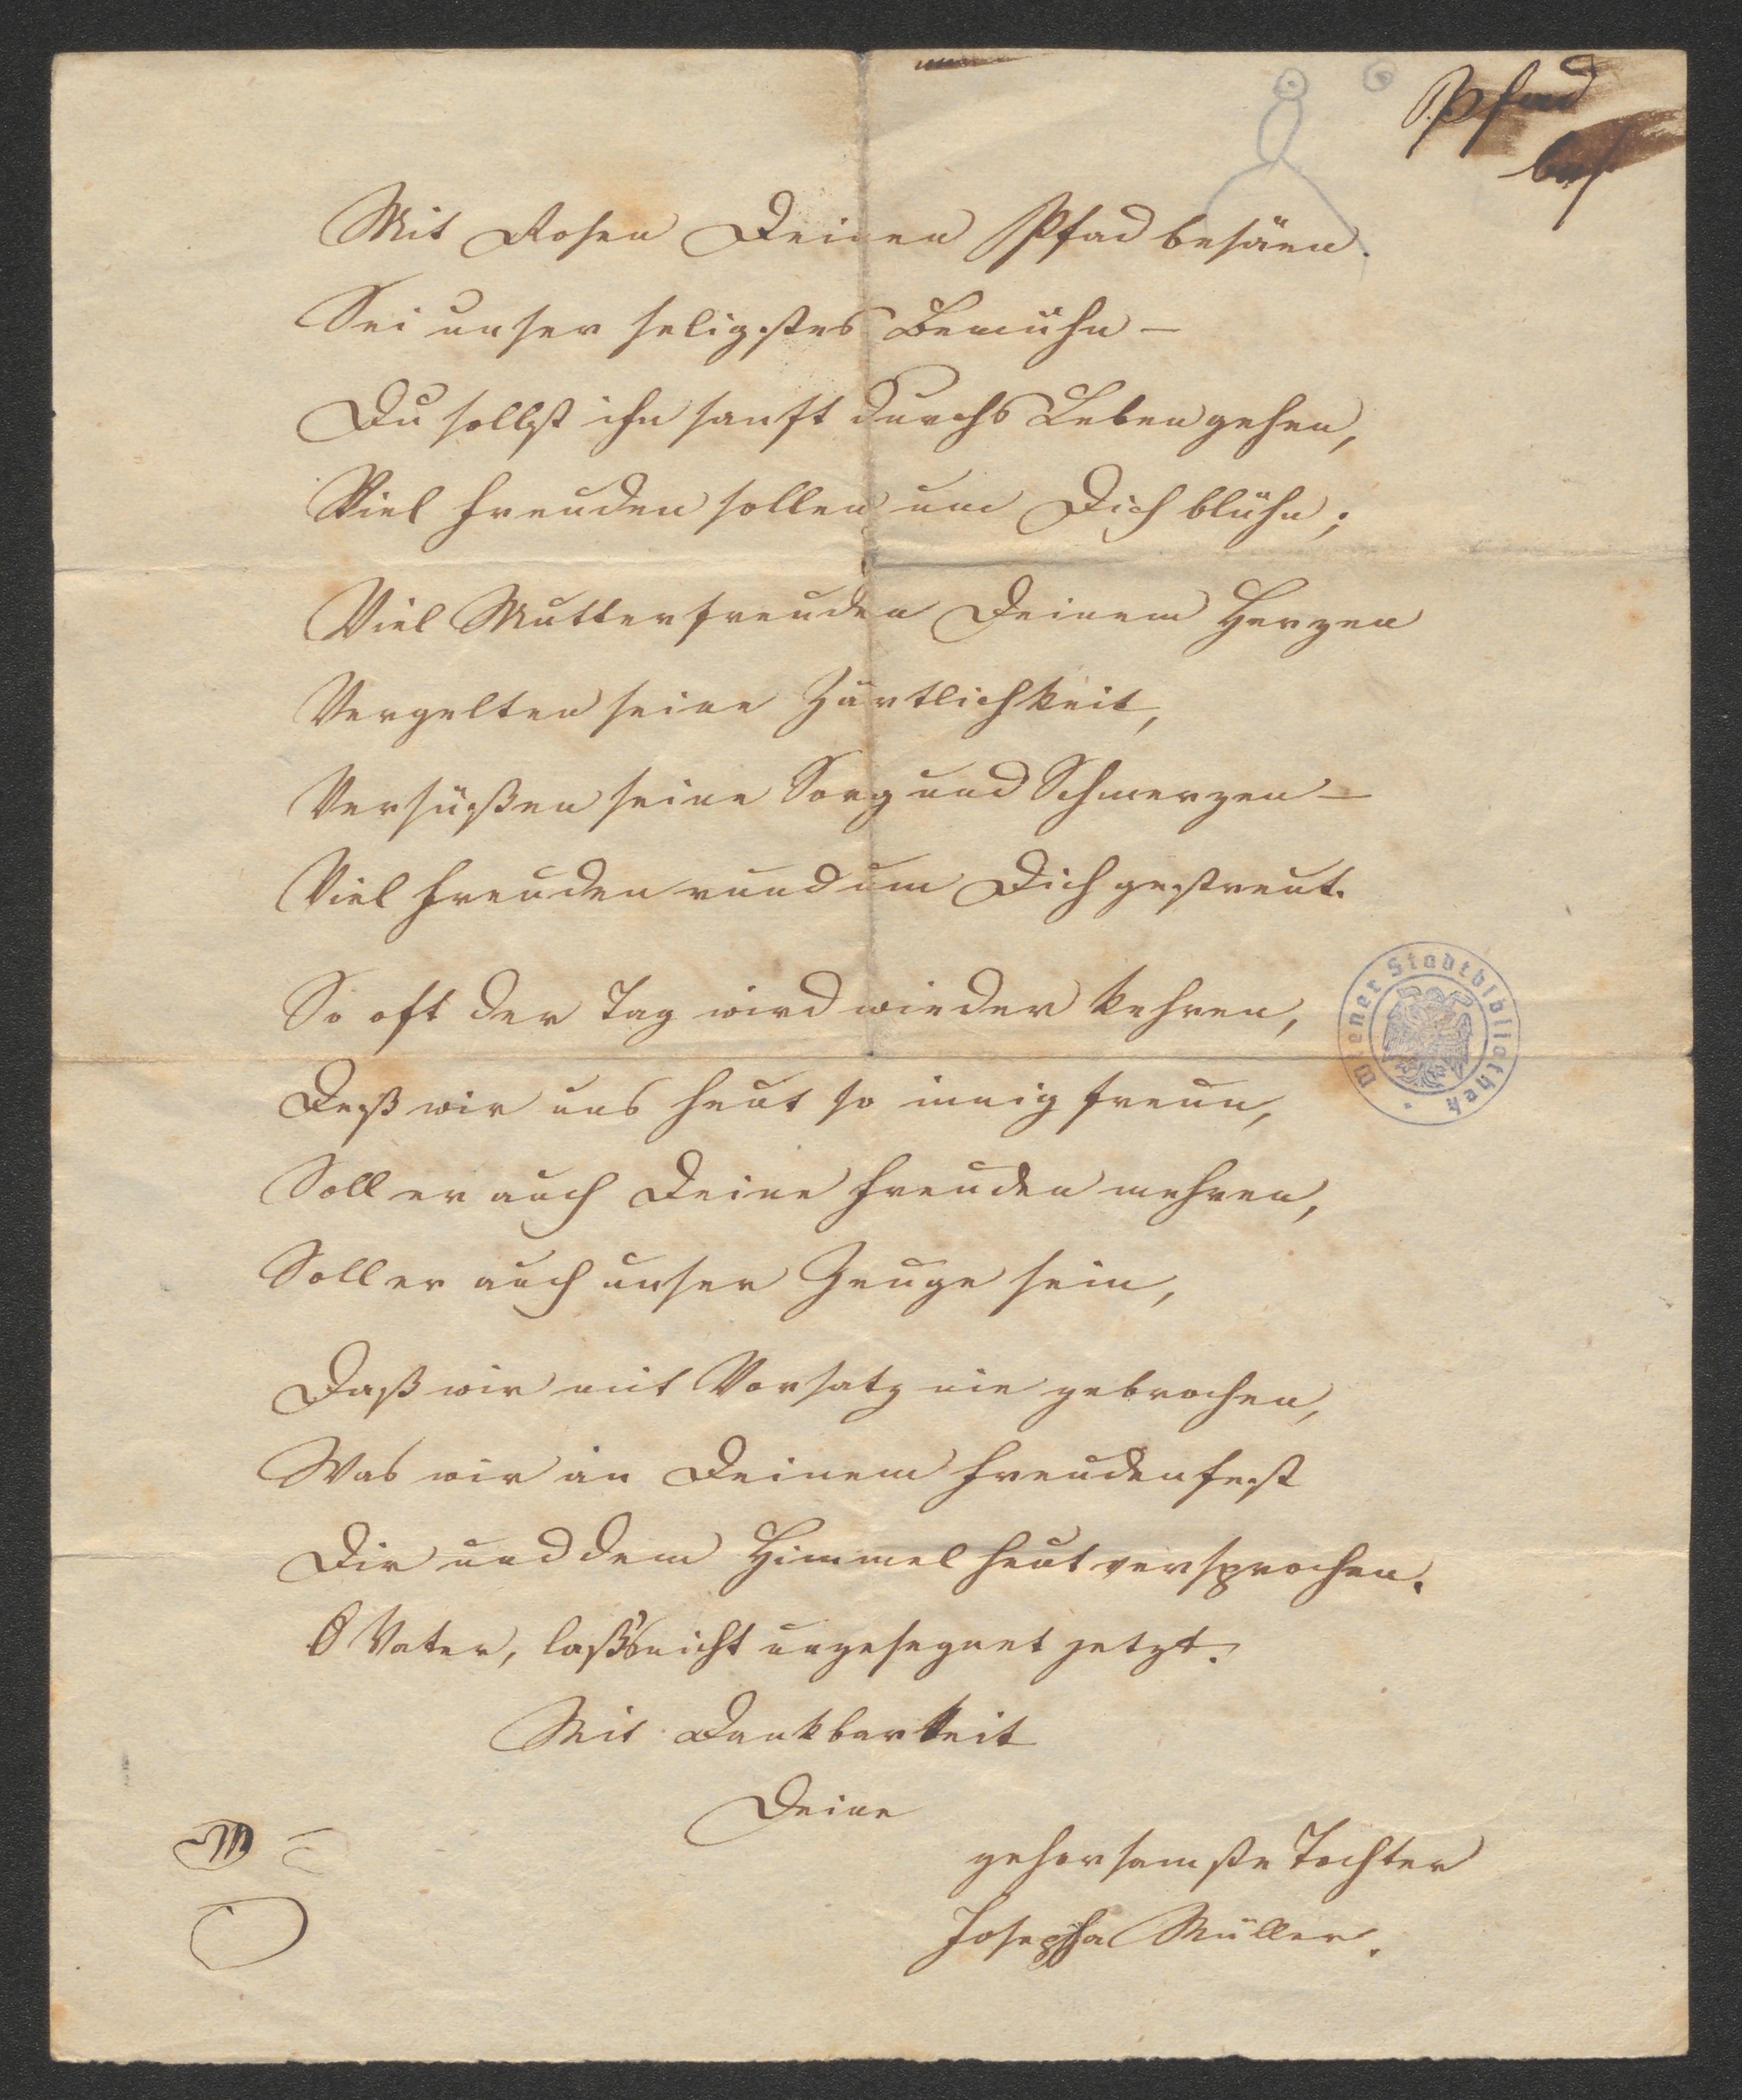 Pfad
bes
Mit Rosen Deinen Pfad besäen.
Sei unser seligstes Bemühn –
Du sollst ihn sanft durchs Leben gehen,
Viel Freuden sollen um Dich blühn;
Viel Mutterfreuden Deinem Herzen
Vergelten seine Zärtlichkeit,
Versüßen seine Sorg und Schmerzen –
Viel Freuden rund um Dich gestreut.
So oft der Tag wird wieder kehren,
Deß wir uns heut so innig freun,
Soll er auch Deine Freuden mehren,
Soll er auch unser Zeuge sein,
Wiener Stadtbibliothek
Daß wir mit Vorsatz nie gebrochen,
Was wir an Deinem Freudenfest
Dir und dem Himmel heut versprochen.
O Vater, laß's nicht ungesegnet jetzt.
Mit Dankbarkeit
Deine
gehorsamste Tochter
Josepha Müller.